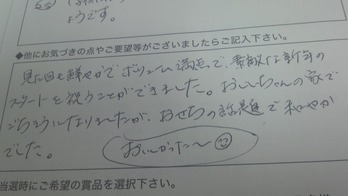 ようです。
◆他にお気づきの点やご要望等がございましたらご記入下さい。
見た目も鮮やかでボリューム満点で、素敵な新年の
スタートを祝うことができました。おじいちゃんの家で
ごちそうになりましたが、おせちの話題で和やか
でした。
おいしかった〜
当選時にご希望の賞品を選択下さい。